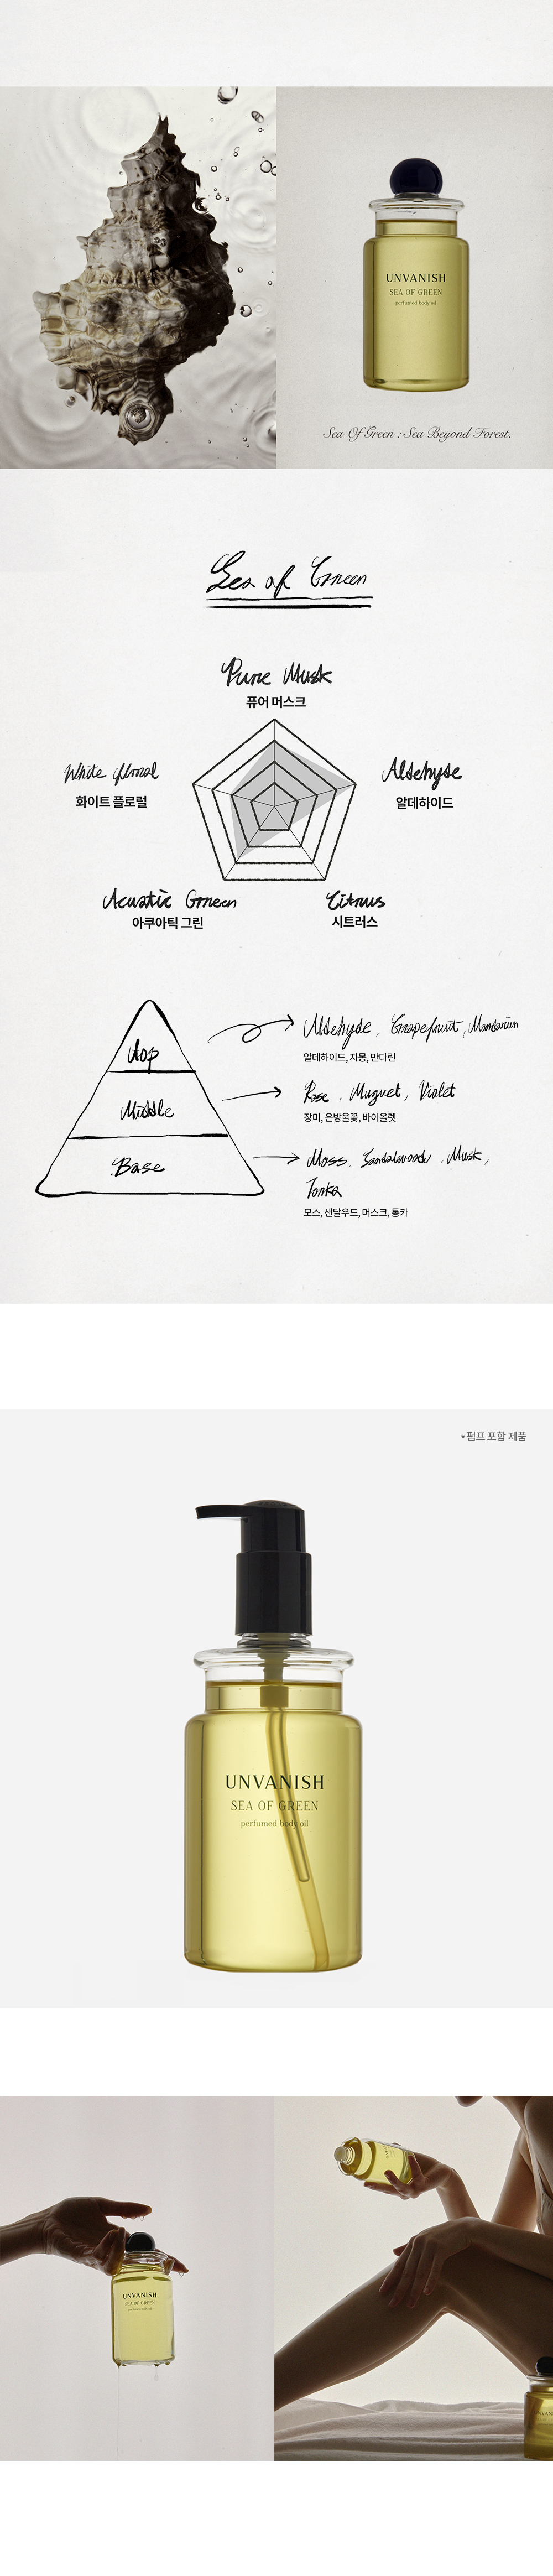 UNVANISH
SEA OF GREEN
perfumed body oil
Sea Of Green : Sea Beyond Forest.
Sea of Green
Pure Musk
퓨어 머스크
White floral
화이트 플로럴
Aldehyde
알데하이드
Acuatic Green
아쿠아틱 그린
Citrus
시트러스
Top
Aldehyde, Grapefruit, Mandarin
알데하이드, 자몽, 만다린
Middle
Rose, Muguet, Violet
장미, 은방울꽃, 바이올렛
Base
Moss, Sandalwood, Musk,
Tonka
모스, 샌달우드, 머스크, 통카
*펌프 포함 제품
UNVANISH
SEA OF GREEN
perfumed body oil
UNVANISH
SEA OF GREEN
perfumed body oil